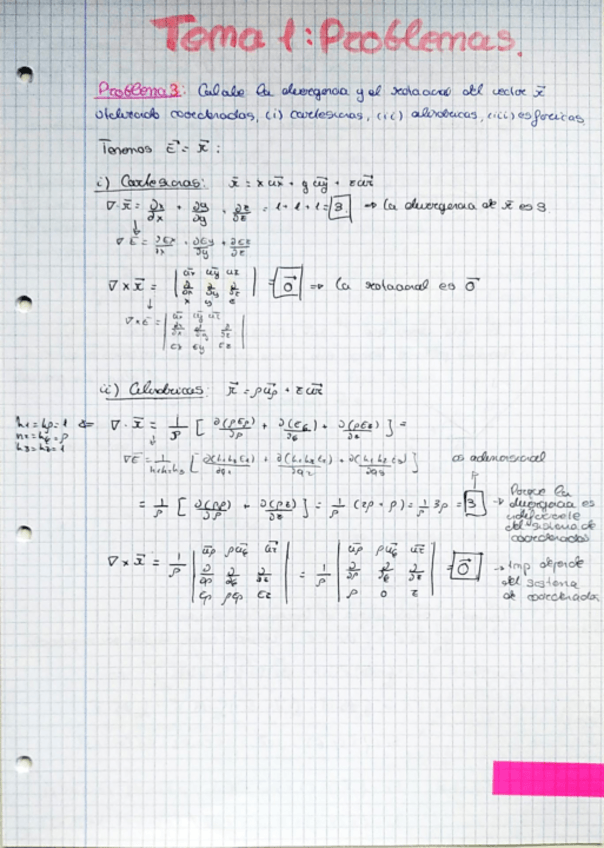 Tema 1: Problemas.
Problema 3: Calcule la divergencia y el rotacional del vector x⃗
utilizando coordenadas, (i) cartesianas, (ii) cilíndricas, (iii) esféricas
Tenemos E⃗ = x⃗ :
i) Cartesianas: x⃗ = x u⃗x + y u⃗y + z u⃗z
∇·x⃗ = ∂x/∂x + ∂y/∂y + ∂z/∂z = 1 + 1 + 1 = 3 ⇒ La divergencia de x⃗ es 3
↓
∇E⃗ = ∂Ex/∂x + ∂Ey/∂y + ∂Ez/∂z
∇ × x⃗ = | u⃗x u⃗y u⃗z | = 0⃗ ⇒ La rotacional es 0⃗
| ∂/∂x ∂/∂y ∂/∂z |
| x y z |
↓
∇×E⃗ = | u⃗x u⃗y u⃗z |
| ∂/∂x ∂/∂y ∂/∂z |
| Ex Ey Ez |
ii) Cilíndricas: x⃗ = ρ u⃗ρ + z u⃗z
h1 = hρ = 1
h2 = hφ = ρ
h3 = hz = 1
⇐ ∇·x⃗ = 1/ρ [ ∂(ρEρ)/∂ρ + ∂(Eφ)/∂φ + ∂(ρEz)/∂z ] =
↓
∇E⃗ = 1/h1h2h3 [ ∂(h2h3E1)/∂q1 + ∂(h1h3E2)/∂q2 + ∂(h1h2E3)/∂q3 ]
es adimensional
= 1/ρ [ ∂(ρρ)/∂ρ + ∂(ρz)/∂z ] = 1/ρ (2ρ + ρ) = 1/ρ 3ρ = 3 → Porque la
divergencia es
indiferente
del sistema de
coordenadas
∇ × x⃗ = 1/ρ | u⃗ρ ρu⃗φ u⃗z | = 1/ρ | u⃗ρ ρu⃗φ u⃗z | = 0⃗ → Imp depende
| ∂/∂ρ ∂/∂φ ∂/∂z | | ∂/∂ρ ∂/∂φ ∂/∂z | del sistema
| Eρ ρEφ Ez | | ρ 0 z | de coordenadas